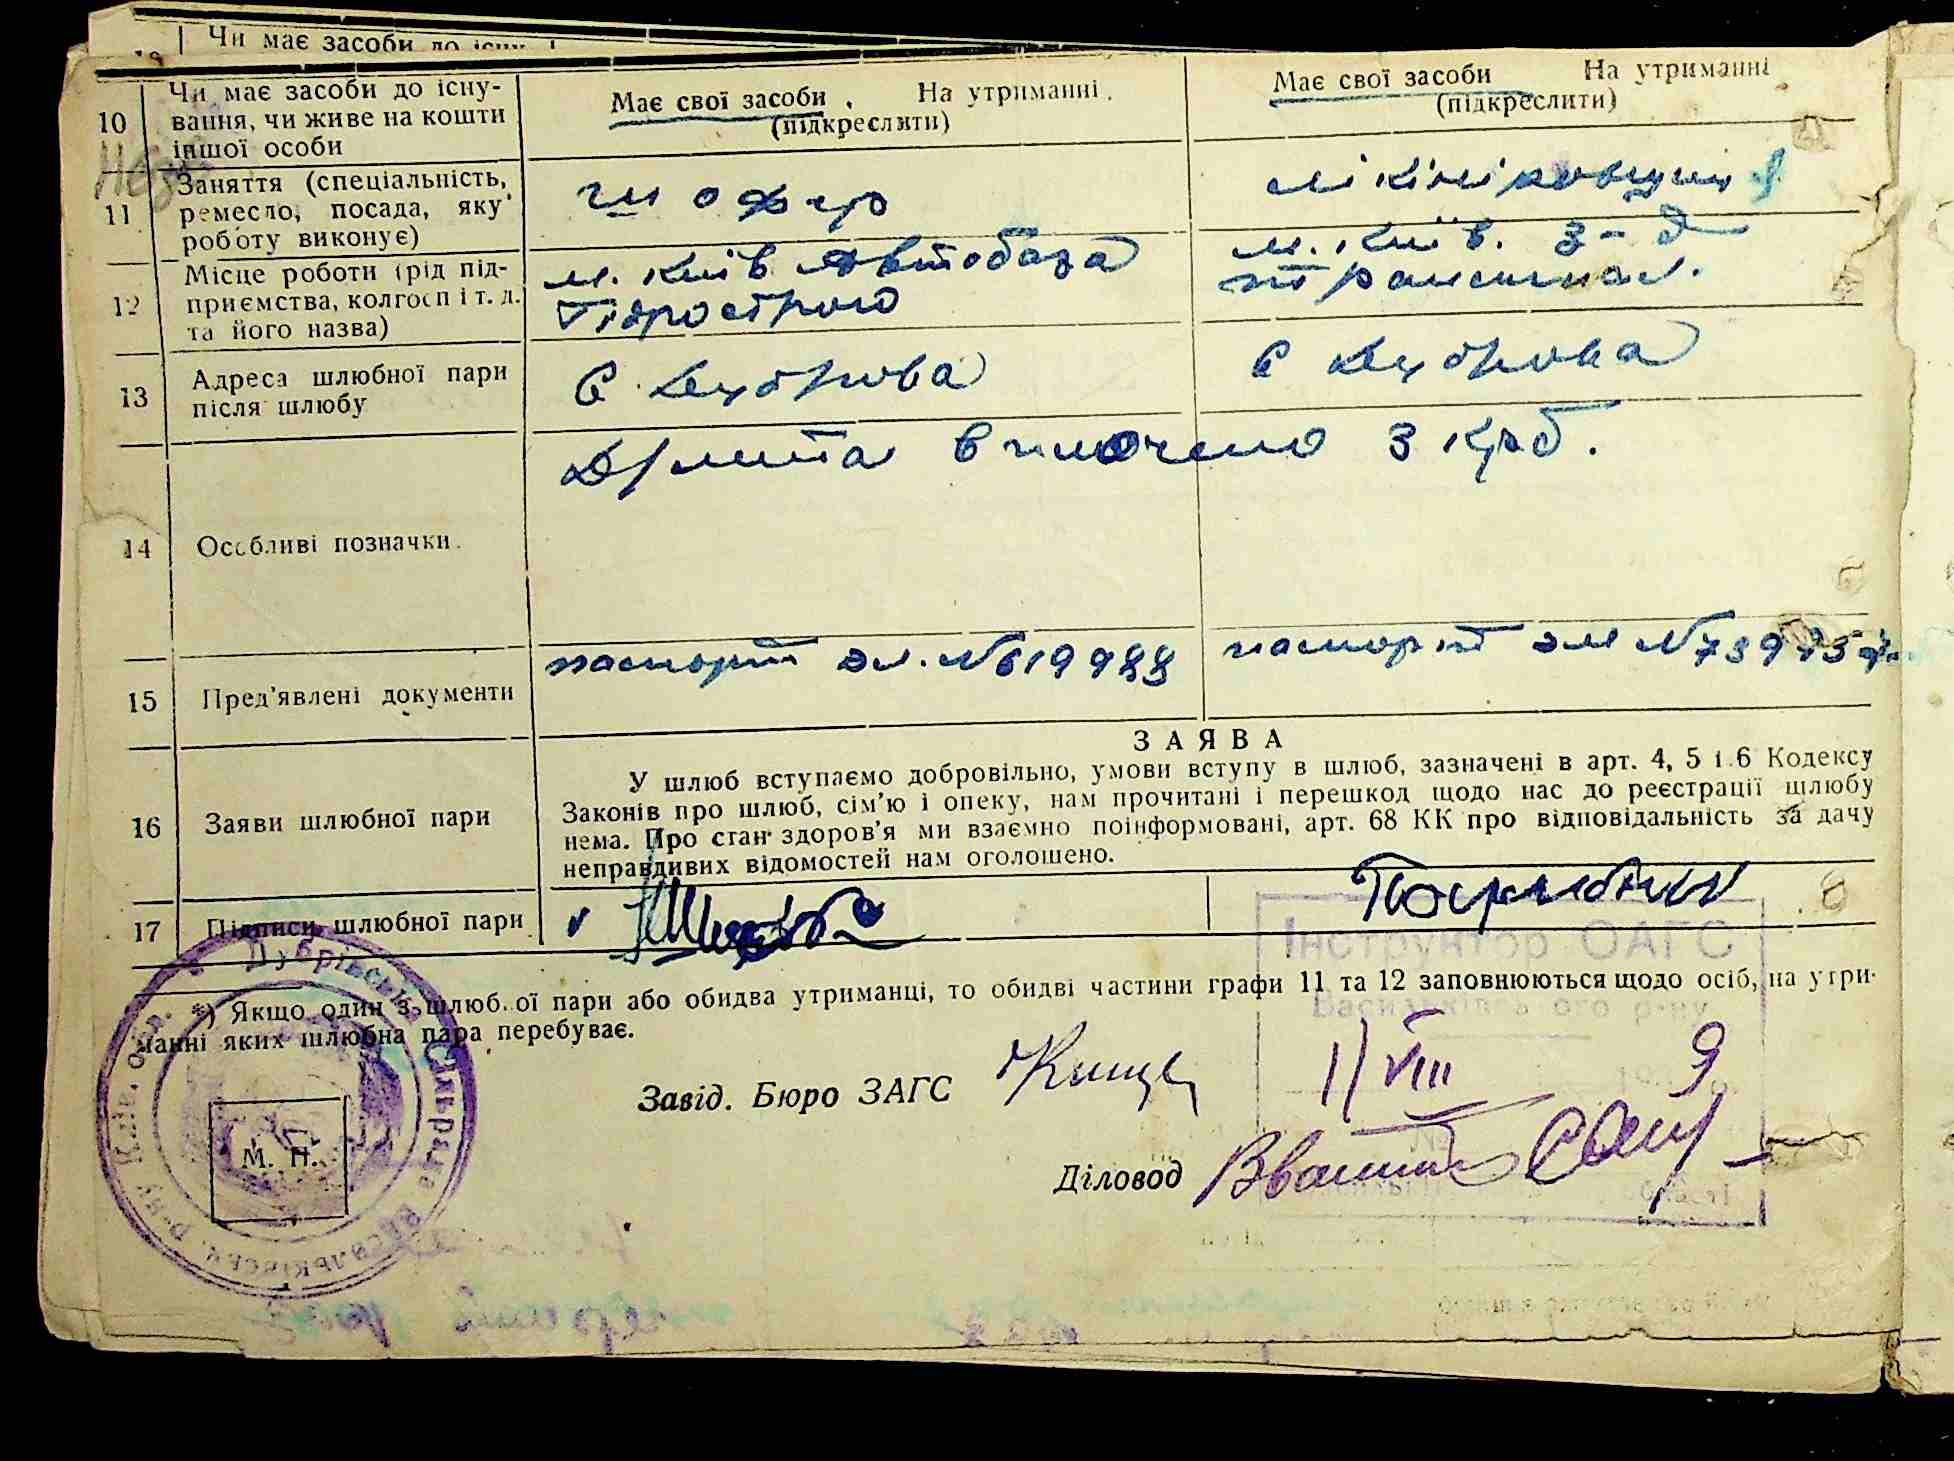 Чи має засоби до існу-
10 Чи має засоби до існу-
вання, чи живе на кошти
іншої особи
Має свої засоби, На утриманні.
(підкреслити)
Має свої засоби На утриманні
(підкреслити)
11 Заняття (спеціальність,
ремесло, посада, яку
роботу виконує)
шофер
12 Місце роботи (рід під-
приємства, колгосп і т. д.
та його назва)
м. Київ Автобаза
Гідрострою
м. Київ. з-д
13 Адреса шлюбної пари
після шлюбу
с Дуброва
с Дуброва
14 Особливі позначки.
виплочено 3 крб.
15 Пред'явлені документи
паспорт № 619988
паспорт №
16 Заяви шлюбної пари
ЗАЯВА
У шлюб вступаємо добровільно, умови вступу в шлюб, зазначені в арт. 4, 5 і 6 Кодексу
Законів про шлюб, сім'ю і опеку, нам прочитані і перешкод щодо нас до реєстрації шлюбу
нема. Про стан здоров'я ми взаємно поінформовані, арт. 68 КК про відповідальність за дачу
неправдивих відомостей нам оголошено.
17 Підписи шлюбної пари
Інструктор ОАГС
Васильківського р-ну
*) Якщо один з шлюбної пари або обидва утриманці, то обидві частини графи 11 та 12 заповнюються щодо осіб, на утри-
манні яких шлюбна пара перебуває.
Завід. Бюро ЗАГС
11 VIII 9
М. П.
Діловод